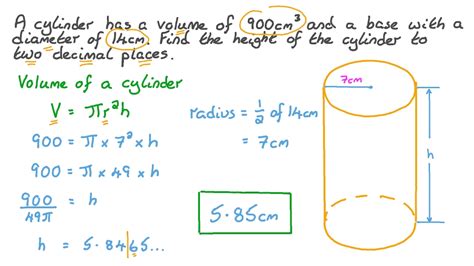 A cylinder has a volume of 900cm³ and a base with a
diameter of 14cm. Find the height of the cylinder to
two decimal places.
Volume of a cylinder
V = πr²h
900 = π × 7² × h
900 = π × 49 × h
900/49π = h
h = 5.8465...
radius = 1/2 of 14cm
= 7cm
5.85cm
7cm
h